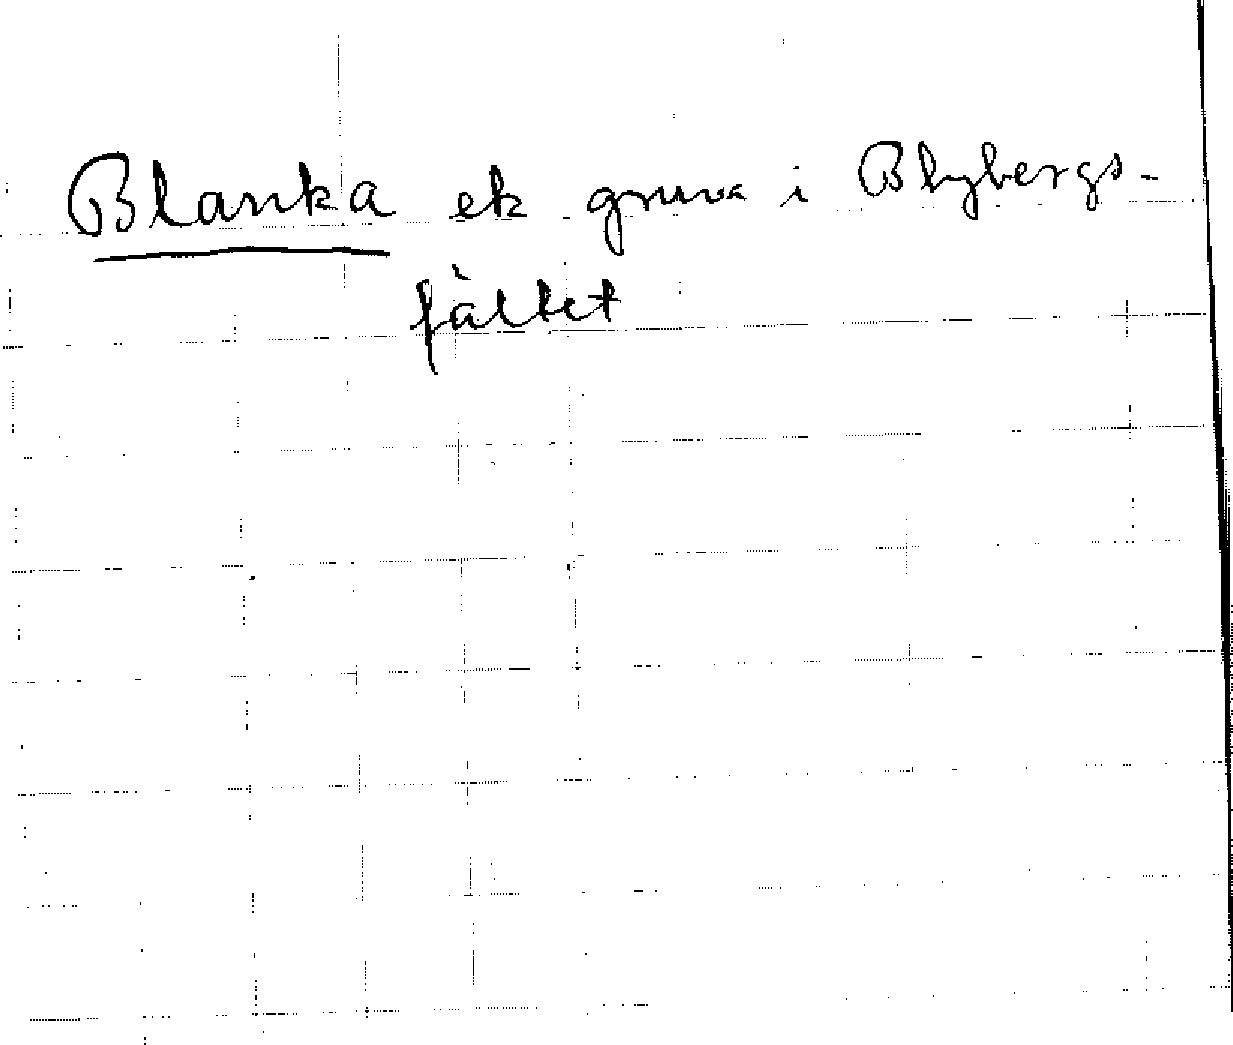 Blanka ek gruva i Blybergs-
fältet